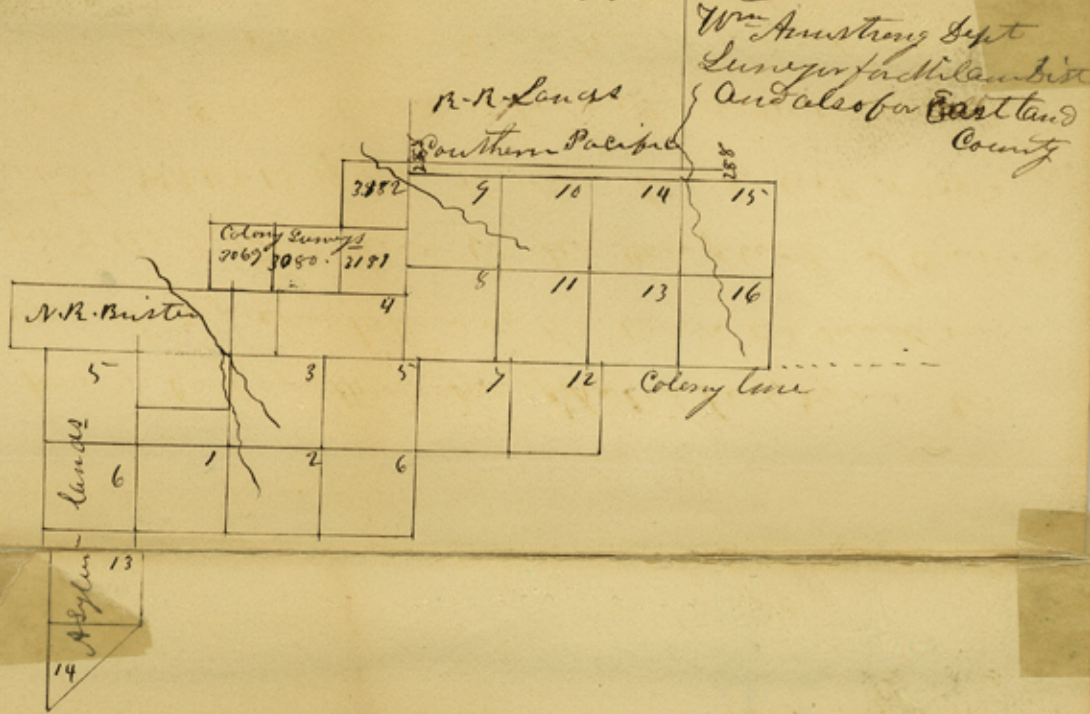 Wm Armstrong Dept
Surveyor for Milam Dist
And also for Eastland
County
R-R-Lands
Southern Pacific
283
288
3182 9 10 14 15
Colony Surveys
3069 3080 3181
8 11 13 16
N.R. Brister
4
5 3 5 7 12
Colony line
6 1 2 6
Asylum lands
13
14